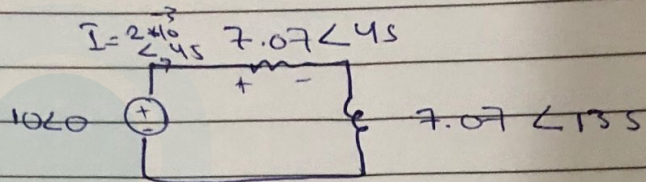 I = 2*10⁻³ <45
7.07<45
+ -
10<0
+
-
7.07 <135